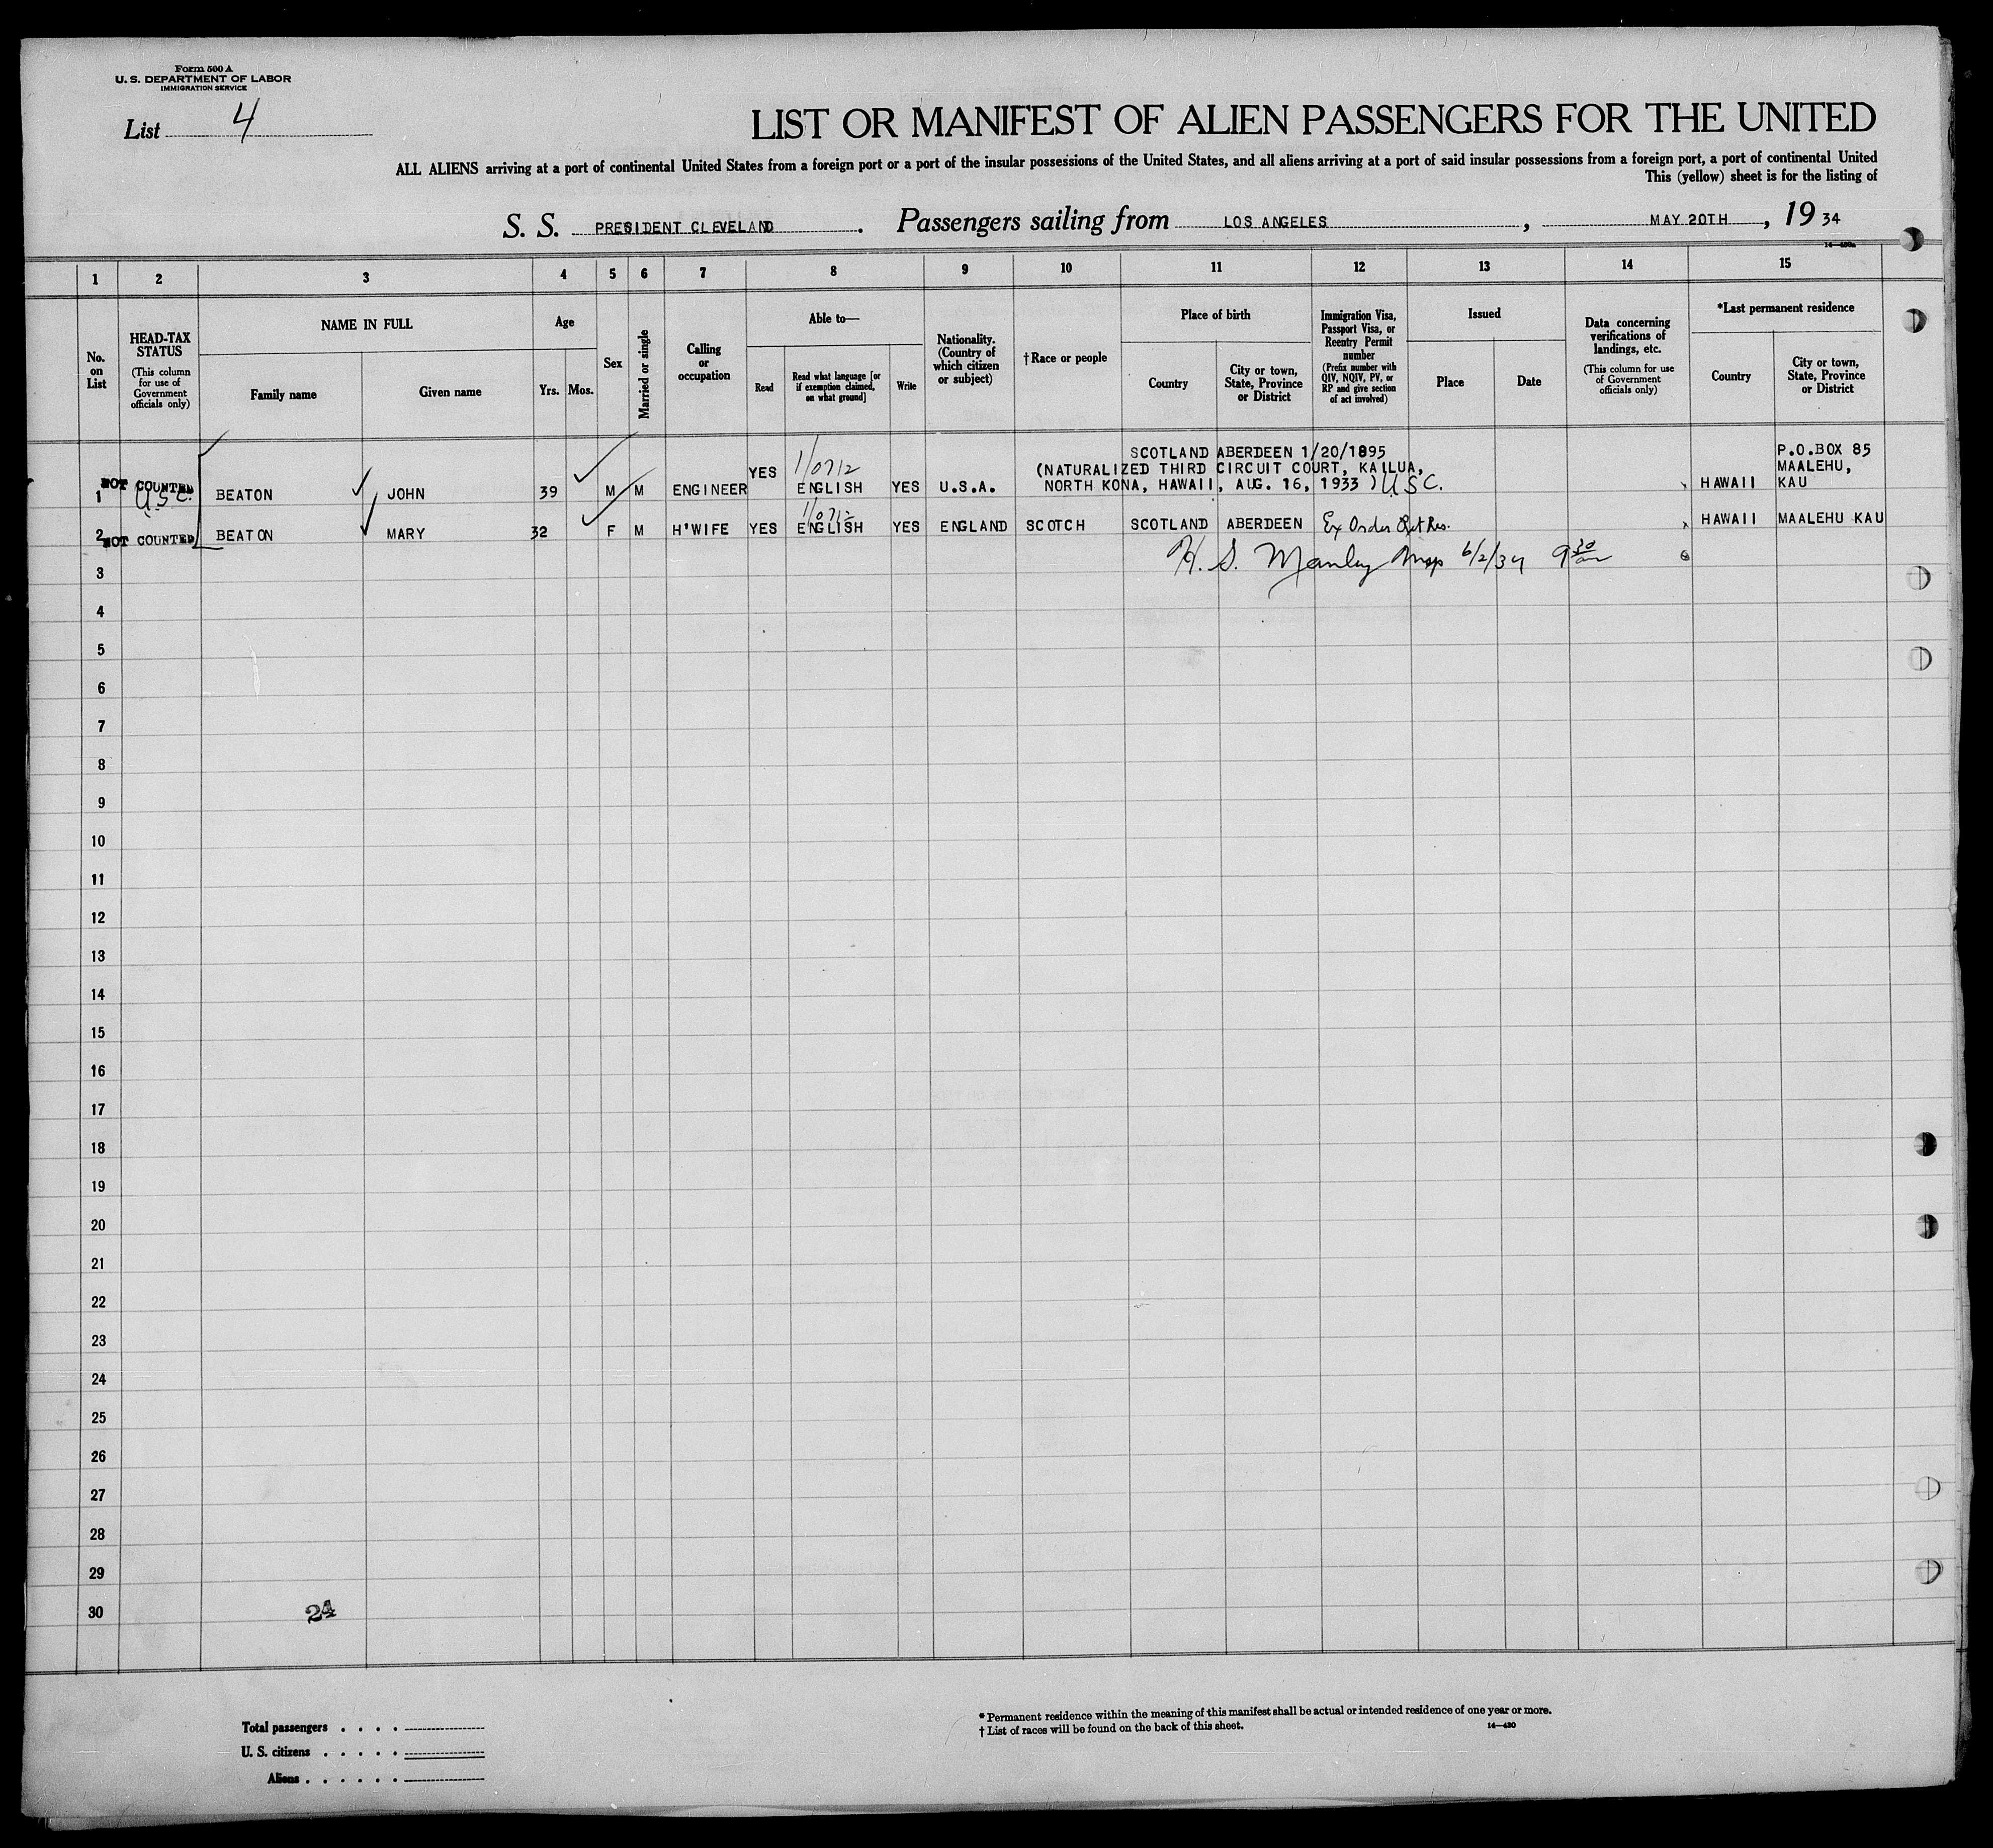 Form 500 A
U. S. DEPARTMENT OF LABOR
IMMIGRATION SERVICE
List 4
LIST OR MANIFEST OF ALIEN PASSENGERS FOR THE UNITED
ALL ALIENS arriving at a port of continental United States from a foreign port or a port of the insular possessions of the United States, and all aliens arriving at a port of said insular possessions from a foreign port, a port of continental United
This (yellow) sheet is for the listing of
S. S. PRESIDENT CLEVELAND. Passengers sailing from LOS ANGELES, MAY 20TH, 19 34
1 2 3 4 5 6 7 8 9 10 11 12 13 14 15
No. on List
HEAD-TAX STATUS (This column for use of Government officials only)
NAME IN FULL
Family name
Given name
Age
Yrs. Mos.
Sex
Married or single
Calling or occupation
Able to—
Read
Read what language [or if exemption claimed, on what ground]
Write
Nationality. (Country of which citizen or subject)
†Race or people
Place of birth
Country
City or town, State, Province or District
Immigration Visa, Passport Visa, or Reentry Permit number (Prefix number with QIV, NQIV, PV, or RP and give section of act involved)
Issued
Place
Date
Data concerning verifications of landings, etc. (This column for use of Government officials only)
*Last permanent residence
Country
City or town, State, Province or District
NOT COUNTED
1 U.S.C. BEATON JOHN 39 M M ENGINEER YES 1/0712 ENGLISH YES U.S.A. SCOTLAND ABERDEEN 1/20/1895
(NATURALIZED THIRD CIRCUIT COURT, KAILUA,
NORTH KONA, HAWAII, AUG. 16, 1933 ) U S C. HAWAII P.O.BOX 85 MAALEHU, KAU
2 NOT COUNTED BEATON MARY 32 F M H'WIFE YES 1/0712 ENGLISH YES ENGLAND SCOTCH SCOTLAND ABERDEEN Ex Order Ret Res. HAWAII MAALEHU KAU
3 H. S. Manley Insp 6/2/34 9 30
4
5
6
7
8
9
10
11
12
13
14
15
16
17
18
19
20
21
22
23
24
25
26
27
28
29
30 24
Total passengers . . . .
U. S. citizens . . . . .
Aliens . . . . . .
* Permanent residence within the meaning of this manifest shall be actual or intended residence of one year or more.
† List of races will be found on the back of this sheet. 14—430